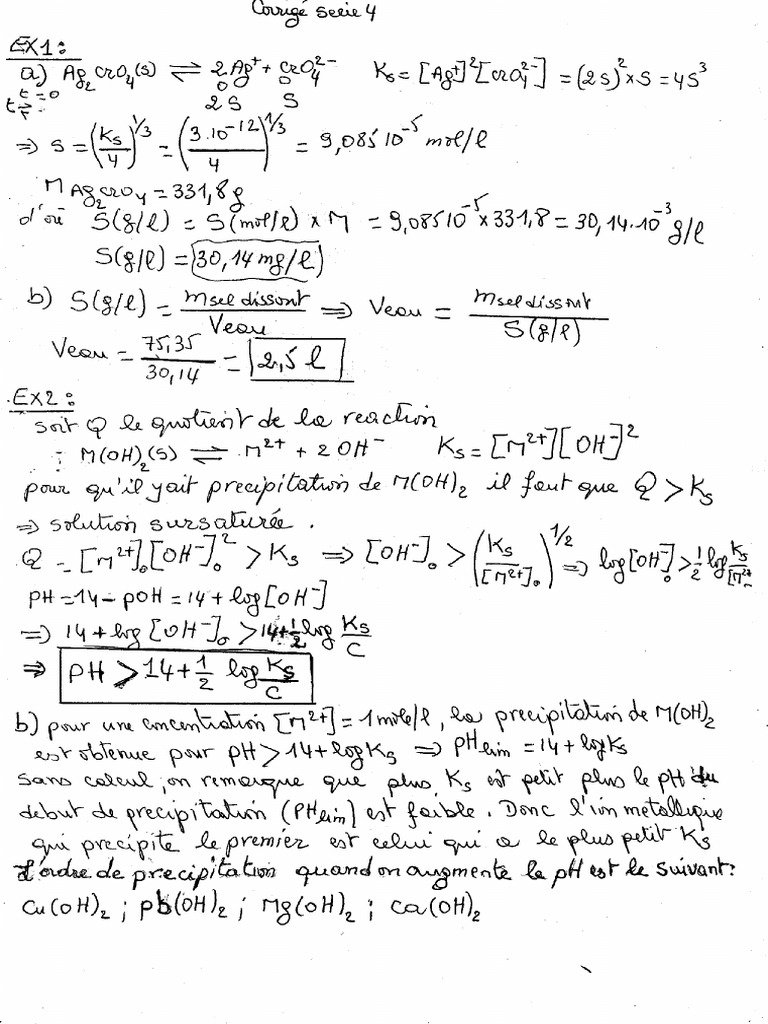 Corrigé serie 4
EX1:
a) Ag₂CrO₄(s) ⇌ 2Ag⁺ + CrO₄²⁻ Ks = [Ag⁺]²[CrO₄²⁻] = (2S)² × S = 4S³
t=0 0 0
2S S
⇒ S = (Ks/4)^1/3 = (3.10⁻¹²/4)^1/3 = 9,085 10⁻⁵ mol/l
M Ag₂CrO₄ = 331,8g
d'où S(g/l) = S(mol/l) × M = 9,085 10⁻⁵ × 331,8 = 30,14.10⁻³ g/l
S(g/l) = 30,14 mg/l
b) S(g/l) = m sel dissout / Veau ⇒ Veau = m sel dissout / S(g/l)
Veau = 75,35 / 30,14 = 2,5 l
EX2:
soit Q le quotient de la reaction
: M(OH)₂(s) ⇌ M²⁺ + 2OH⁻ Ks = [M²⁺][OH⁻]²
pour qu'il y ait precipitation de M(OH)₂ il faut que Q > Ks
⇒ solution sursaturée.
Q = [M²⁺]₀[OH⁻]₀² > Ks ⇒ [OH⁻]₀ > (Ks/[M²⁺]₀)^1/2 ⇒ log[OH⁻]₀ > 1/2 log Ks/[M²⁺
pH = 14 - pOH = 14 + log[OH⁻]
⇒ 14 + log[OH⁻]₀ > 14 + 1/2 log Ks/C
⇒ pH > 14 + 1/2 log Ks/C
b) pour une concentration [M²⁺] = 1 mole/l, la precipitation de M(OH)₂
est obtenue pour pH > 14 + log Ks ⇒ pHlim = 14 + log Ks
Sans calcul, on remarque que plus Ks est petit plus le pH du
debut de precipitation (pHlim) est faible. Donc l'ion metallique
qui precipite le premier est celui qui a le plus petit Ks
L'ordre de precipitation quand on augmente le pH est le suivant:
Cu(OH)₂ ; Pb(OH)₂ ; Mg(OH)₂ ; Ca(OH)₂